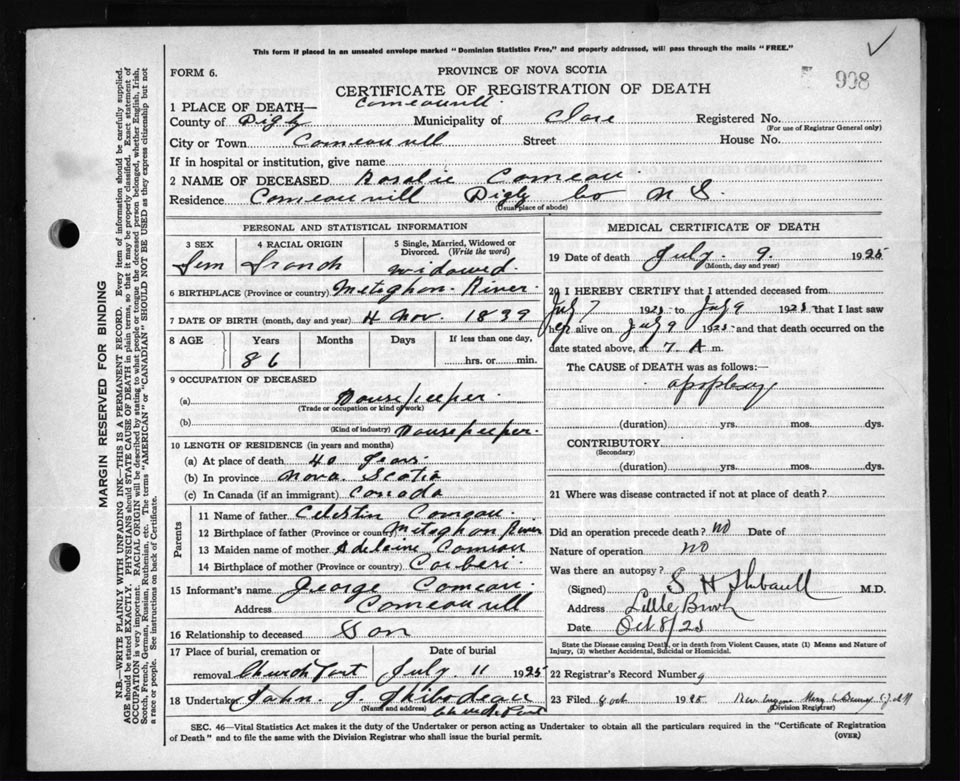 This form if placed in an unsealed envelope marked "Dominion Statistics Free," and properly addressed, will pass through the mails "FREE."
FORM 6.
PROVINCE OF NOVA SCOTIA
908
CERTIFICATE OF REGISTRATION OF DEATH
1 PLACE OF DEATH— Comeauvill
County of Digby Municipality of Clare Registered No.
(For use of Registrar General only)
City or Town Comeauvill Street House No.
If in hospital or institution, give name
2 NAME OF DECEASED Rosalie Comeau
Residence Comeauvill Digby Co N S.
(Usual place of abode)
PERSONAL AND STATISTICAL INFORMATION
3 SEX 4 RACIAL ORIGIN 5 Single, Married, Widowed or Divorced. (Write the word)
Fem French widowed.
6 BIRTHPLACE (Province or country) Meteghan River
7 DATE OF BIRTH (month, day and year) 4 Nov. 1839
8 AGE Years Months Days If less than one day,
86 hrs. or min.
9 OCCUPATION OF DECEASED
(a) Housekeeper
(Trade or occupation or kind of work)
(b) Housekeeper
(Kind of industry)
10 LENGTH OF RESIDENCE (in years and months)
(a) At place of death 40 years
(b) In province Nova Scotia
(c) In Canada (if an immigrant) Canada
Parents
11 Name of father Celestin Comeau
12 Birthplace of father (Province or country) Meteghan River
13 Maiden name of mother Adelaine Comeau
14 Birthplace of mother (Province or country) Corberi
15 Informant's name George Comeau
Address Comeauvill
16 Relationship to deceased Son
17 Place of burial, cremation or removal Date of burial
Church Point July 11 1925
18 Undertaker John J. Thibodeau
(Name and address) Church Point
MEDICAL CERTIFICATE OF DEATH
19 Date of death July 9. 1925
(Month, day and year)
20 I HEREBY CERTIFY that I attended deceased from
July 7 1925 to July 9 1925 that I last saw
her alive on July 9 1925 and that death occurred on
date stated above, at 7 A m.
The CAUSE of DEATH was as follows:—
apoplexy
(duration) yrs. mos. dys.
CONTRIBUTORY
(Secondary)
(duration) yrs. mos. dys.
21 Where was disease contracted if not at place of death?
Did an operation precede death? No Date of
Nature of operation no
Was there an autopsy?
(Signed) S H Thibault M.D.
Address Little Brook
Date Oct 8/25
State the Disease causing Death, or in death from Violent Causes, state (1) Means and Nature of Injury, (2) whether Accidental, Suicidal or Homicidal.
22 Registrar's Record Number 9
23 Filed 8 oct 1925
(Division Registrar)
SEC. 46—Vital Statistics Act makes it the duty of the Undertaker or person acting as Undertaker to obtain all the particulars required in the "Certificate of Registration
of Death" and to file the same with the Division Registrar who shall issue the burial permit.
(OVER)
MARGIN RESERVED FOR BINDING
N.B.—WRITE PLAINLY WITH UNFADING INK—THIS IS A PERMANENT RECORD. Every item of information should be carefully supplied.
AGE should be stated EXACTLY. PHYSICIANS should STATE CAUSE OF DEATH in plain terms, so that it may be properly classified. Exact statement of
OCCUPATION is very important. RACIAL ORIGIN will be described by stating to what people or tongue the deceased person belonged, whether English, Irish,
Scotch, French, German, Russian, Ruthenian, etc. The terms "AMERICAN" or "CANADIAN" SHOULD NOT BE USED as they express citizenship but not
a race or people. See instructions on back of Certificate.